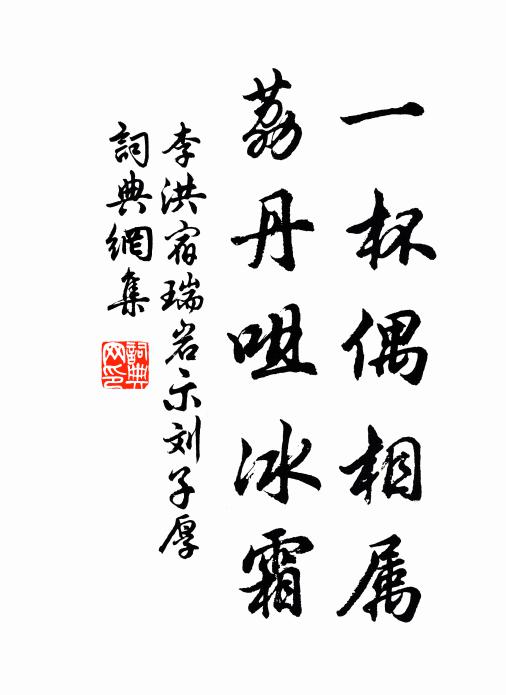 一杯偶相属
荔丹咀冰霜
李洪宿瑞岩示刘子厚
詞典網集
詞典网印